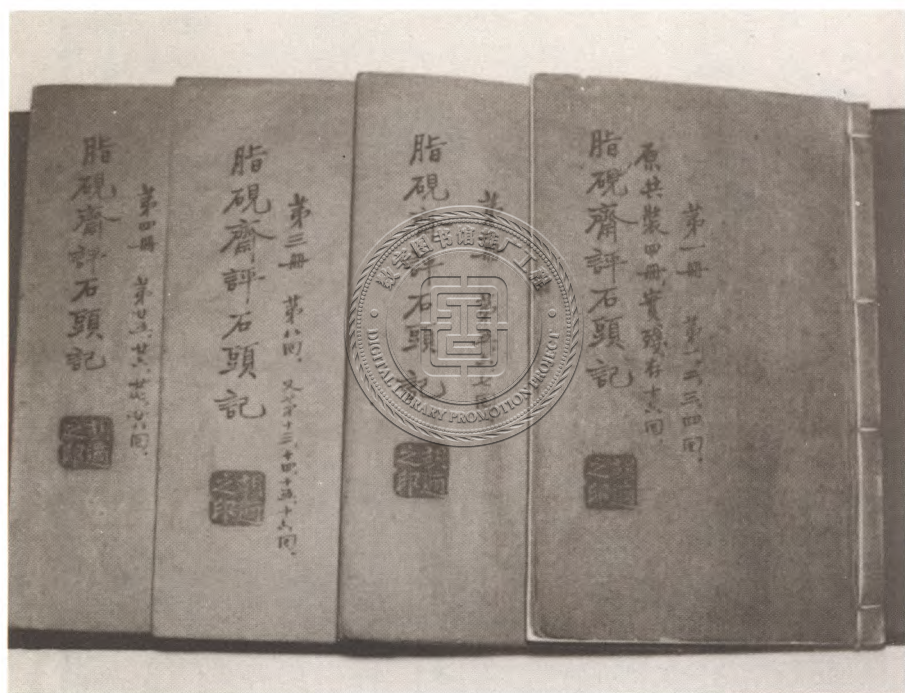 第一冊 第一、二、三、四回、
原共裝四冊、實殘存十六回、
脂硯齋評石頭記
胡適之印
第二冊
脂硯齋評石頭記
胡適之印
第三冊 第八回、又第十三、十四、十五、十六回、
脂硯齋評石頭記
胡適之印
第四冊 第廿五、廿六、廿七、廿八回、
脂硯齋評石頭記
胡適之印
数字图书馆推广工程
DIGITAL LIBRARY PROMOTION PROJECT